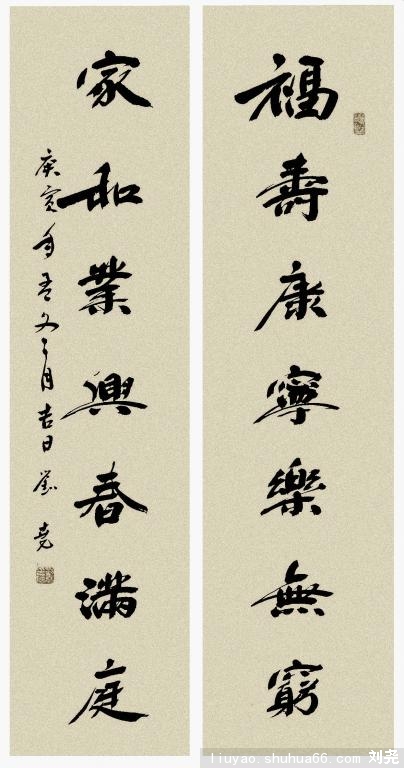 福壽康寧樂無窮
家和業興春滿庭
庚寅年月吉日劉堯
liuyao.shuhua66.com 刘尧